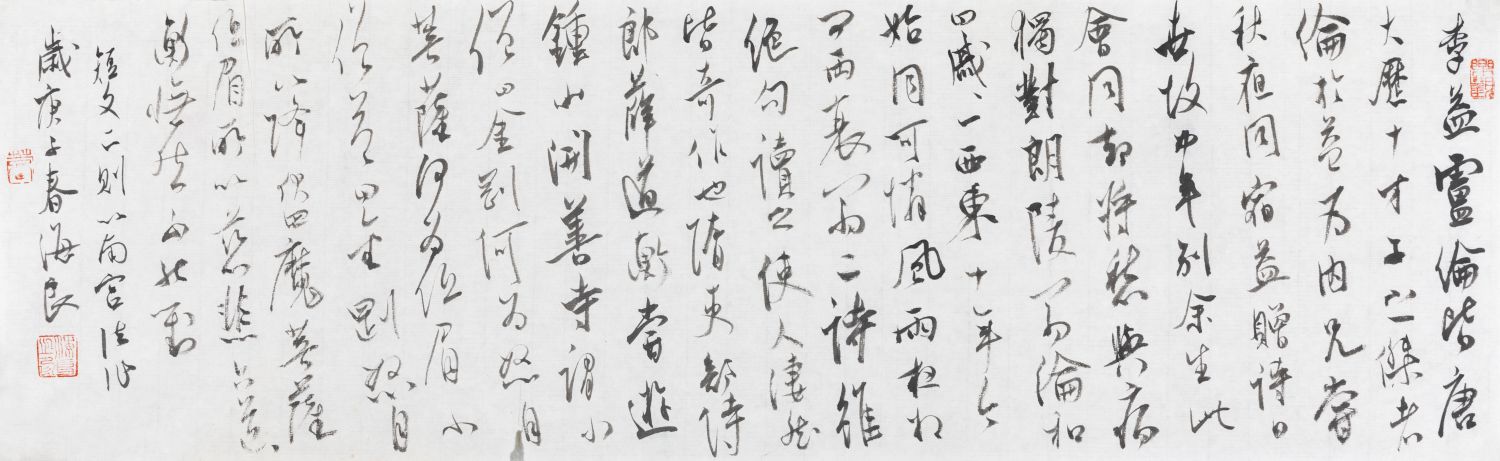 李益盧倫皆唐
大歷十才子之傑者
倫於益为内兄嘗
秋夜同宿益贈詩曰
世故中年别余生此
會同却将愁與病
獨對朗陵翁淪和
曰戚〻一西東十年今
始同可憐風雨夜相
問兩衰翁二詩雖
絶句讀之使人淒然
皆奇作也隋吏部侍
郎薛道衡嘗遊
鍾山開善寺謂小
僧曰金剛何为怒目
菩薩何为低眉小
僧答曰金剛怒目
所以降伏四魔菩薩
低眉所以慈悲六道
衡憮然不能對
短文二則以南宫法作
歲庚子春海良